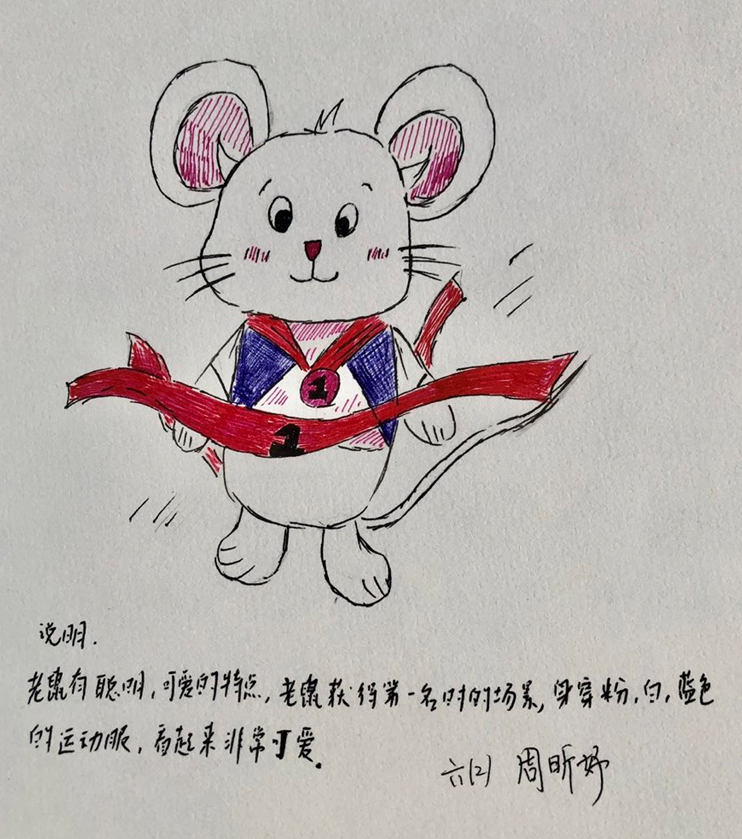 1
1
说明.
老鼠有聪明,可爱的特点,老鼠获得第一名时的场景,身穿粉,白,蓝色
的运动服,看起来非常可爱。
六(2) 周昕妤